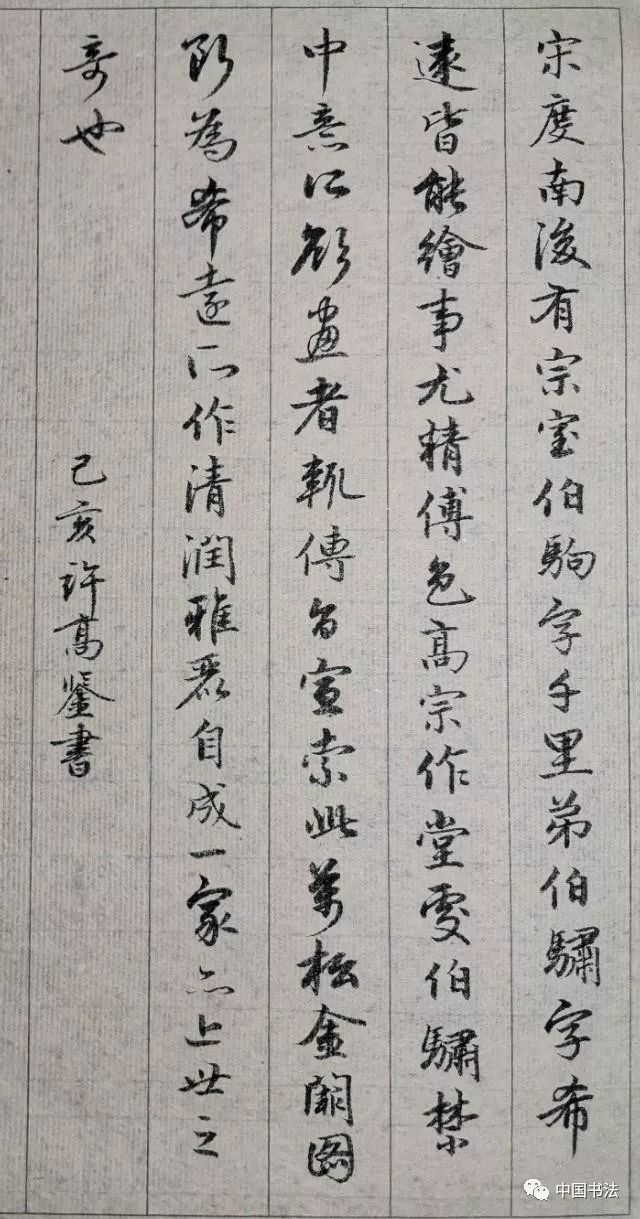 宋度南後有宗室伯駒字千里弟伯驌字希
遠皆能繪事尤精傅色高宗作堂處伯驌禁
中意所欲畫者輒傳旨宣索此萬松金闕圖
斷為希遠所作清潤雅麗自成一家亦上世之
奇也
己亥許高鑒書
中国书法